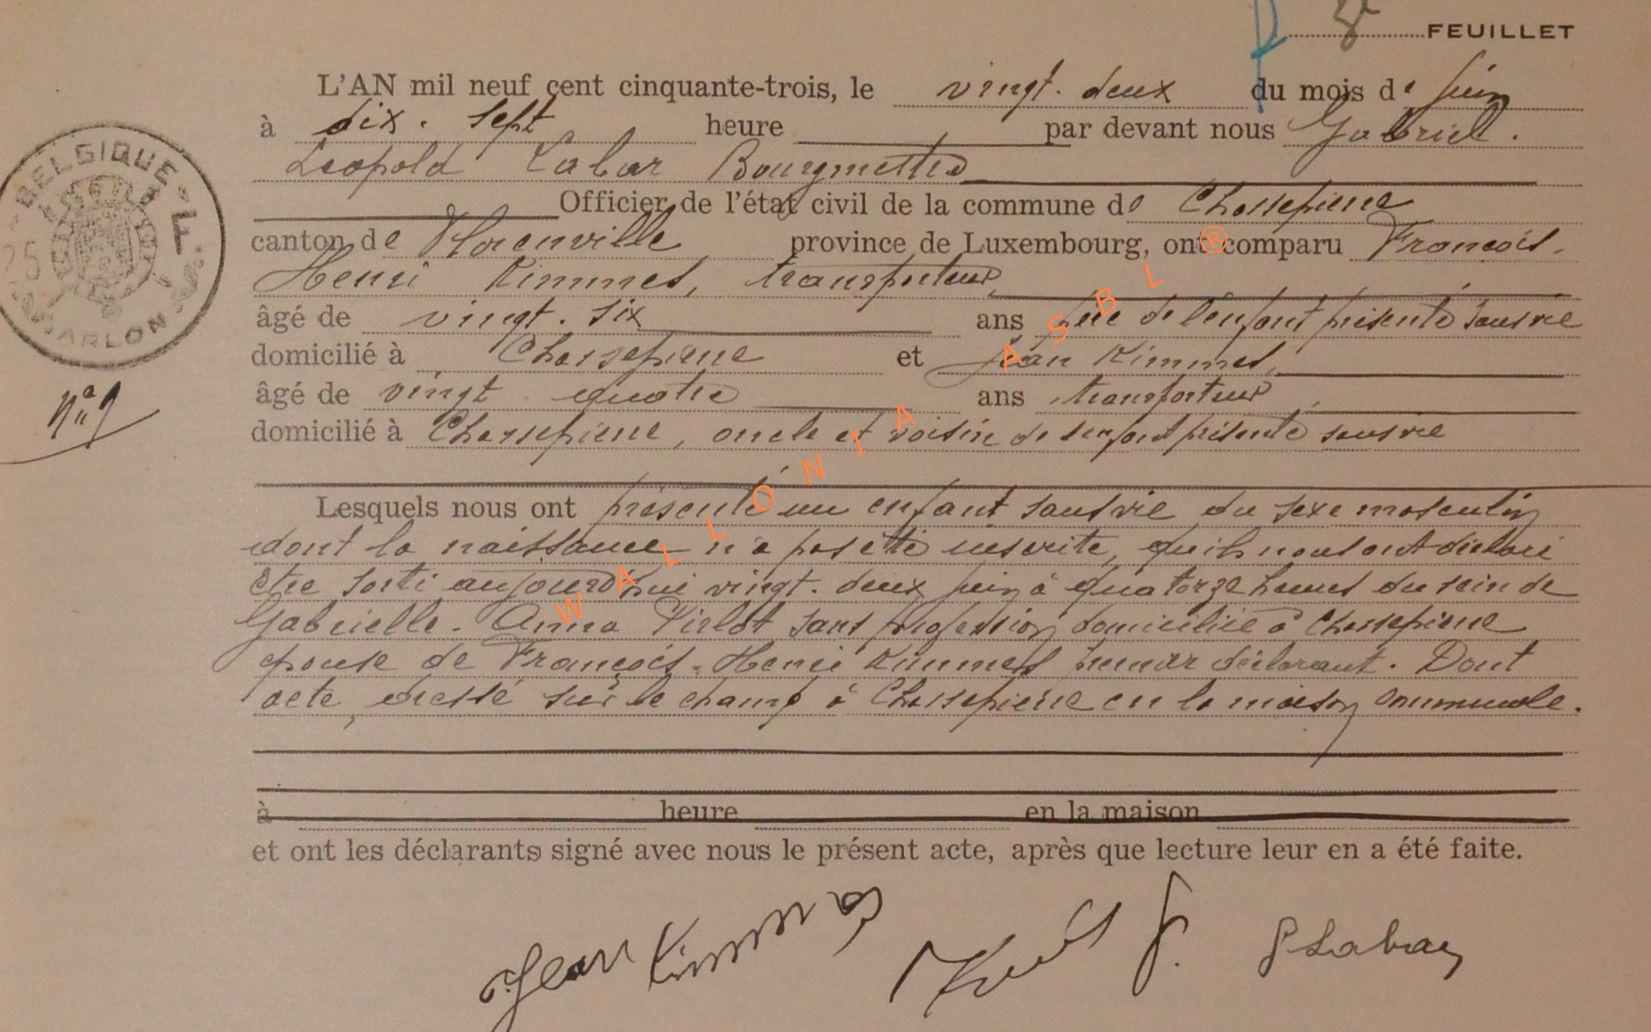 8e FEUILLET
L'AN mil neuf cent cinquante-trois, le vingt-deux du mois de juin
à dix-sept heure par devant nous Gabriel-
Léopold Labar Bourgmestre
Officier de l'état civil de la commune de Chassepierre
canton de Florenville province de Luxembourg, ont comparu François-
Henri Kimmes, transporteur,
âgé de vingt-six ans père de l'enfant présenté sans vie
domicilié à Chassepierre et Jean Kimmes,
âgé de vingt quatre ans transporteur,
domicilié à Chassepierre, oncle et voisin de l'enfant présenté sans vie
N° 9
Lesquels nous ont présenté un enfant sans vie du sexe masculin
dont la naissance n'a pas été inscrite, qu'ils nous ont déclaré
être sorti aujourd'hui vingt-deux juin à quatorze heures du sein de
Gabrielle-Anna Pierlot sans profession domiciliée à Chassepierre
épouse de François-Henri Kimmes premier déclarant. Dont
acte, dressé sur le champ à Chassepierre en la maison communale.
à heure en la maison
et ont les déclarants signé avec nous le présent acte, après que lecture leur en a été faite.
Jean Kimmes G Labar
BELGIQUE
ARLON
WALLONIA ASBL ®